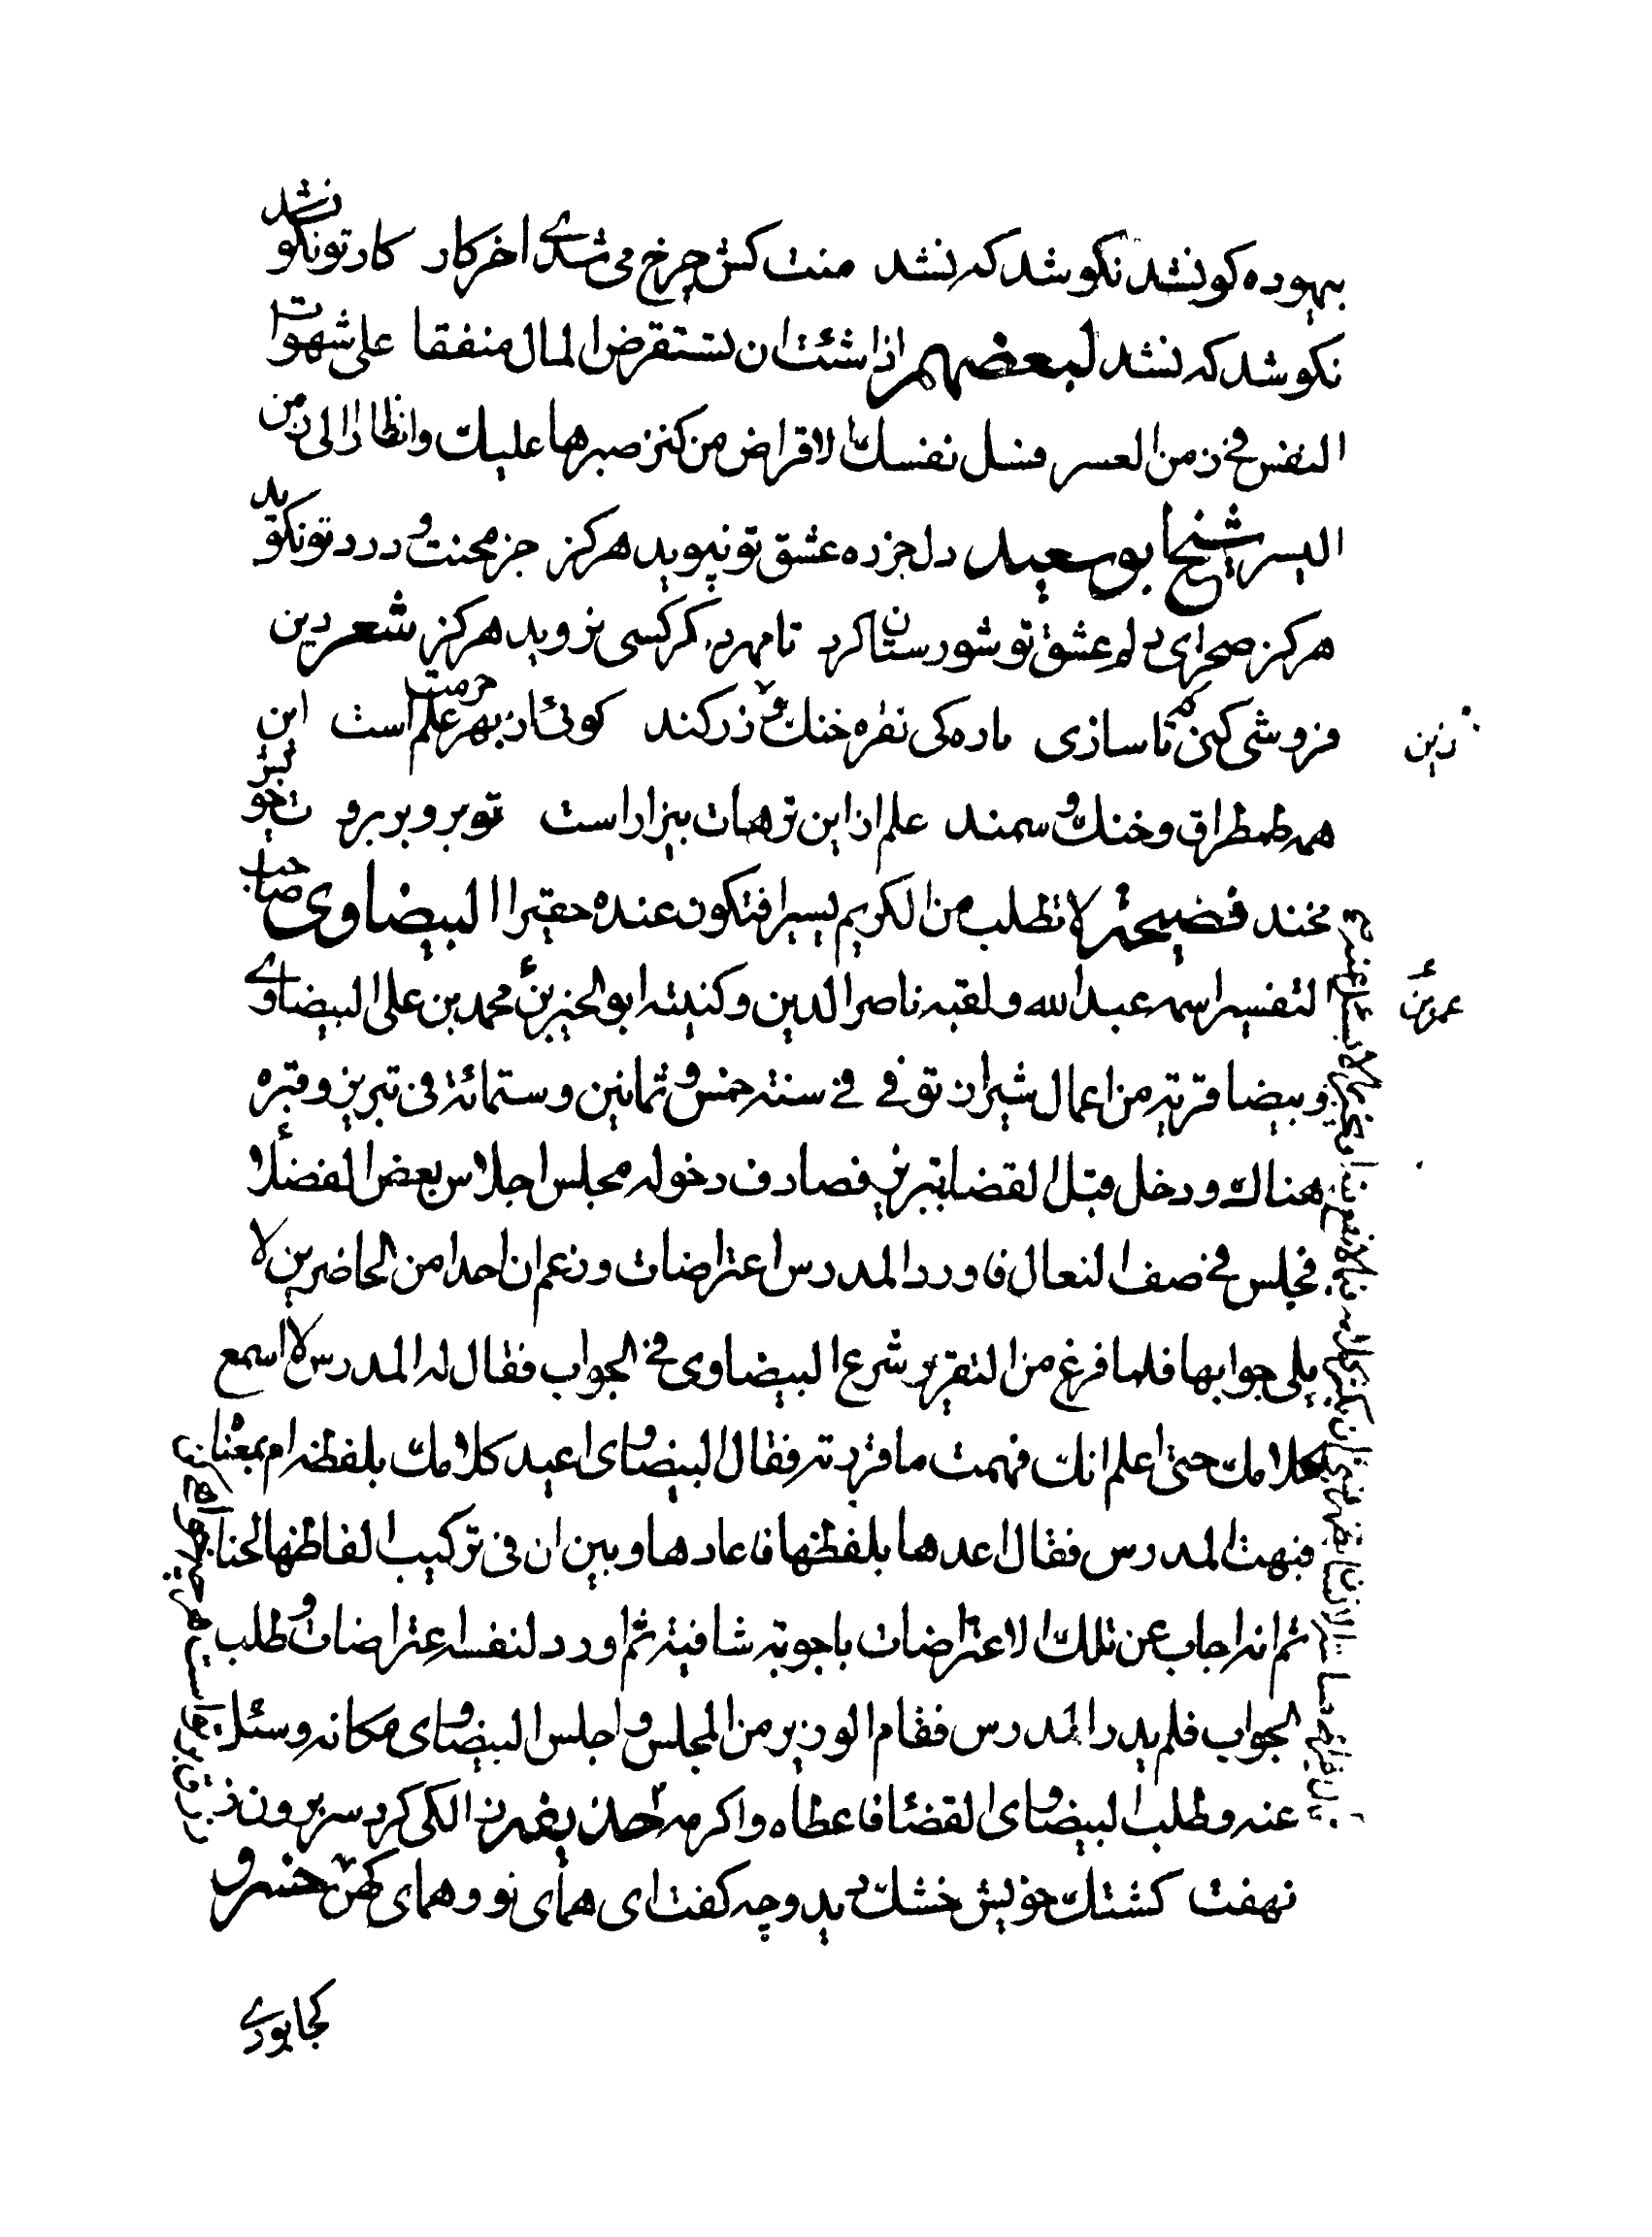 بیهوده کو نشد نکو شد که نشد منت کش چرخ می شدی اخر کار کار تو نکو نشد
نکو شد که نشد لبعضهم اذا شئت ان تستقرض المال منفقا علی شهوات
النفس فی زمن العسر فسل نفسک الاقراض من کنز صبرها علیک وانظارا الی زمن
الیسر شیخ ابو سعید دل جز ره عشق تو نپوید هرکز جز محنت و درد تو نکوید
هرکز صحرای دلم عشق تو شورستان کرد تا مهر کسی نروید هرکز شعر دین
فروشی کنی که تا سازی ماره کی نقره خنک و زر کند کوئی از بهر حرمت علم است این
زین
همه طمطراق و خنک و سمند علم ازین ترهات بیزار است تو برو بر بروت خویش
مخند نصیحة لا تطلب من الکریم یسیرا فتکون عنده حقیرا البیضاوی صاحب
التفسیر اسمه عبد الله ولقبه ناصر الدین وکنیته ابو الخیر بن محمد بن علی البیضاوی
عمر بن
و بیضا قریة من اعمال شیراز توفی فی سنة خمس و ثمانین وستمائة فی تبریز وقبره
هناک و دخل قبل القضا بتبریز فصادف دخوله مجلس اجلاس بعض الفضلاء
فجلس فی صف النعال فاورد المدرس اعتراضات وزعم ان احدا من الحاضرین لا
یلی جوابها فلما فرغ من التقریر شرع البیضاوی فی الجواب فقال له المدرس لا اسمع
کلامک حتی اعلم انک فهمت ما قررته فقال البیضاوی اعید کلامک بلفظه ام بمعناه
فبهت المدرس فقال اعدها بلفظها فاعادها وبین ان فی ترکیب الفاظها لحنا
ثم انه اجاب عن تلک الاعتراضات باجوبة شافیة ثم اورد لنفسه اعتراضات و طلب
الجواب فلم یدر المدرس فقام الوزیر من المجلس و اجلس البیضاوی مکانه وسئل
عنه وطلب البیضاوی القضاء فاعطاه واکرمه لکی کرد سر برون ز
نهفت کشتک خویش خشک دید و چه کفت ای همای نو و همای کهن خسرو
کجا بودی